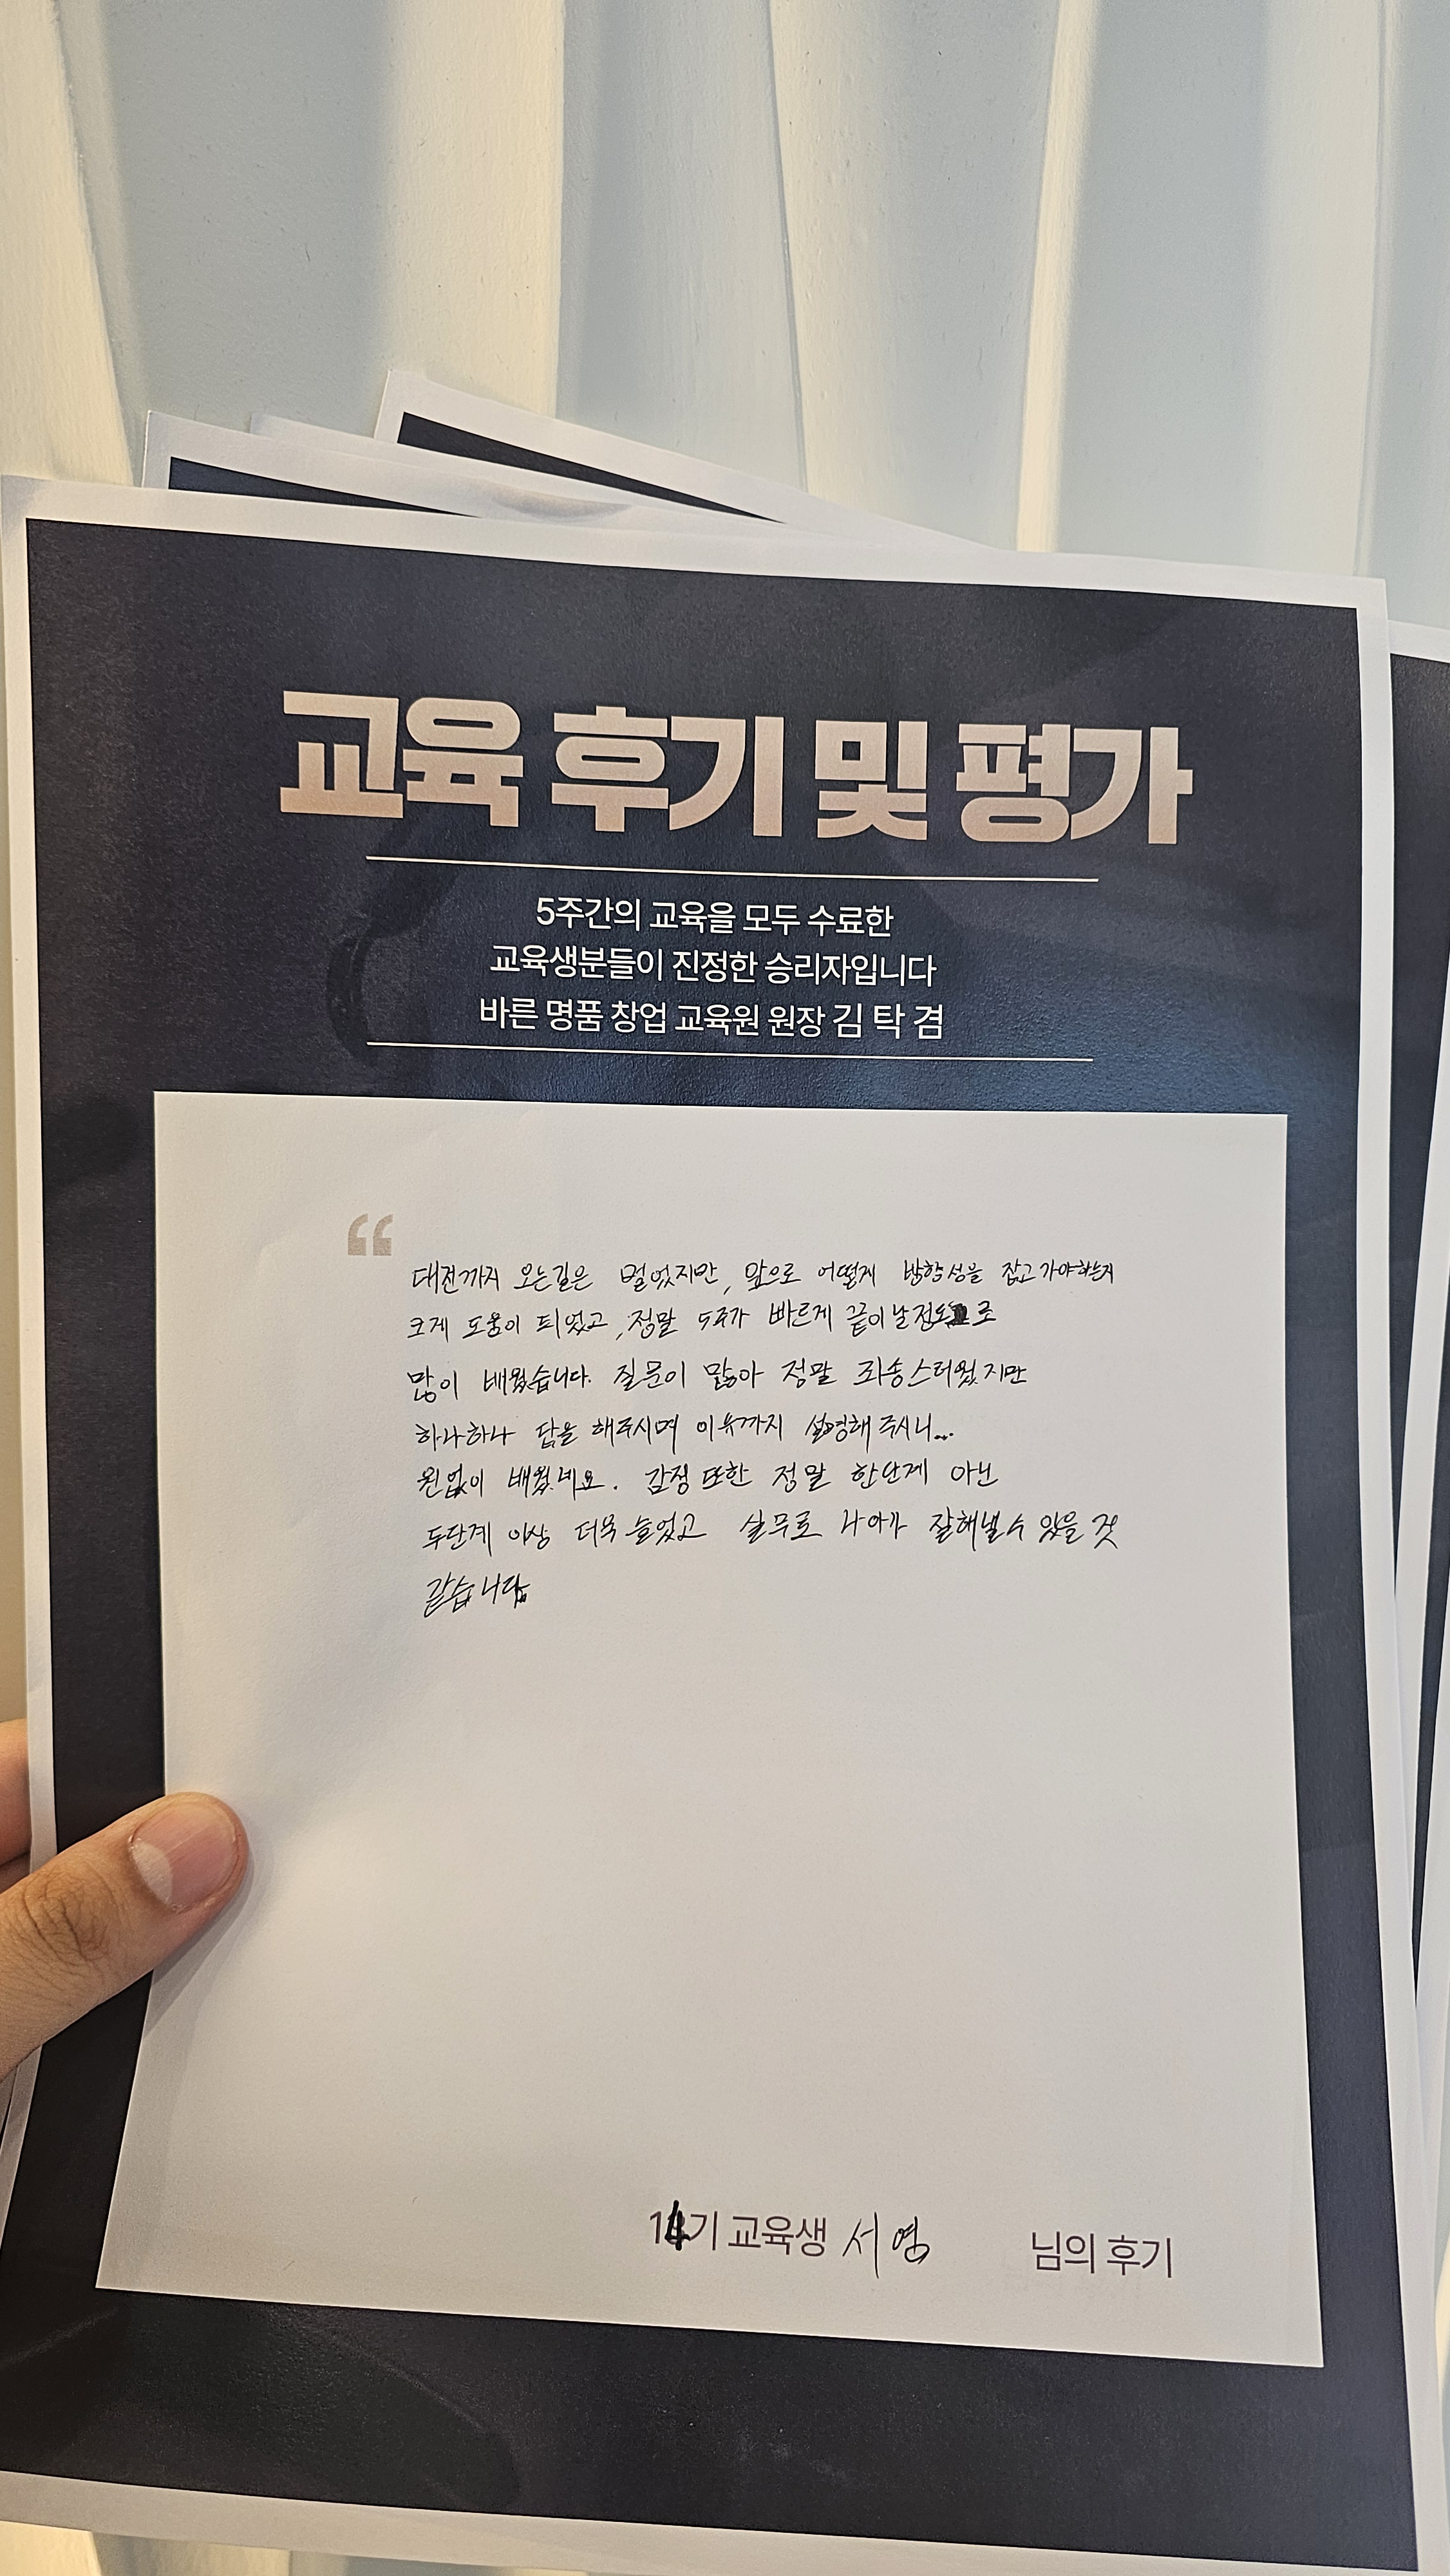 교육 후기 및 평가
5주간의 교육을 모두 수료한
교육생분들이 진정한 승리자입니다
바른 명품 창업 교육원 원장 김 탁 겸
“
대전까지 오는길은 멀었지만, 앞으로 어떻게 방향성을 잡고가야하는지
크게 도움이 되었고, 정말 5주가 빠르게 끝이날정도로
많이 배웠습니다. 질문이 많아 정말 죄송스러웠지만
하나하나 답을 해주시며 이유까지 설명해주시니...
원없이 배웠네요. 감정 또한 정말 한단계 아닌
두단계 이상 더욱 늘었고 실무로 나아가 잘해낼수 있을 것
같습니다
14기 교육생 서영 님의 후기